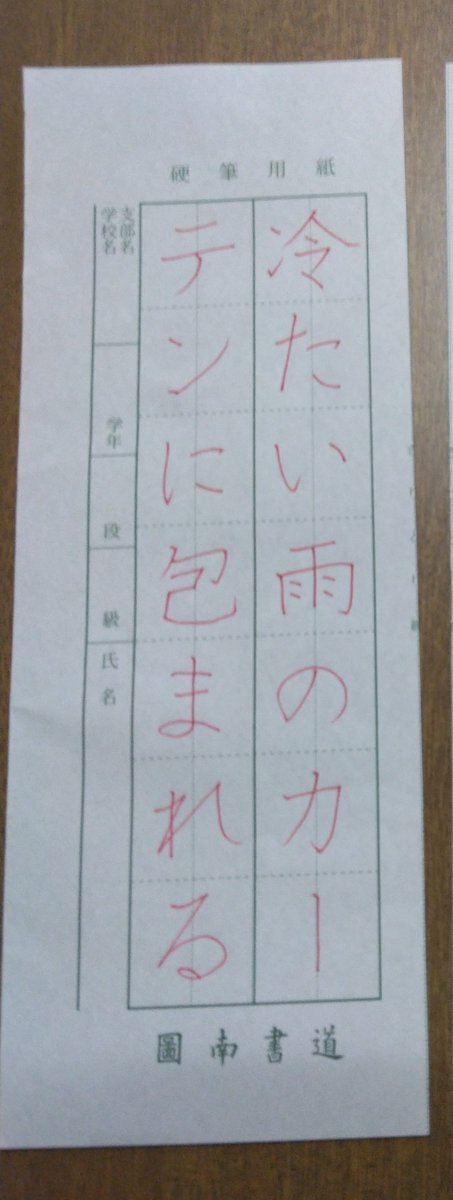 硬筆用紙
冷たい雨のカー
テンに包まれる
支部名
学校名
学年
段
級
氏名
圖南書道